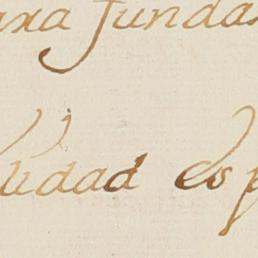 ara fundar
lidad es p